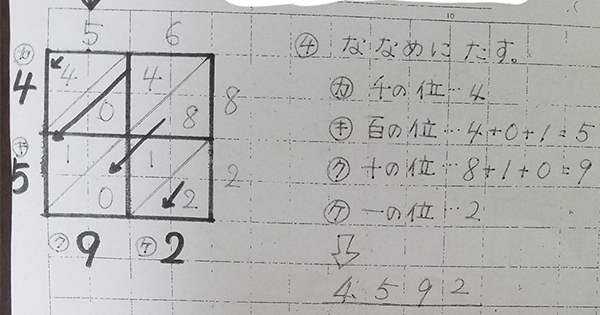 5 6
㋕
4 4 4 8
0 8
㋖ 1 1
5 0 2 2
㋗ 9 ㋘ 2
10
④ ななめにたす。
㋕ 千の位…4
㋖ 百の位…4+0+1=5
㋗ 十の位…8+1+0=9
㋘ 一の位…2
⇩
4592